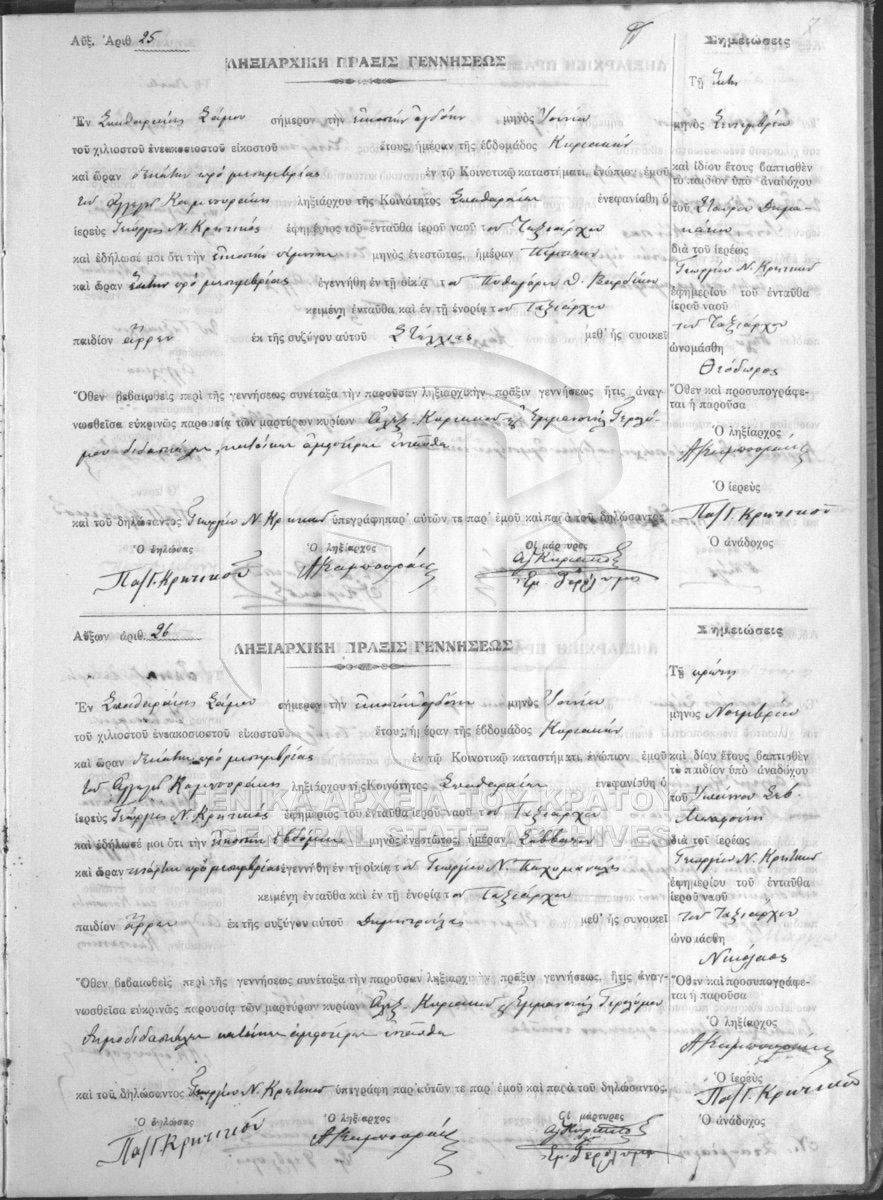 Αὔξ. Ἀριθ. 25
ΛΗΞΙΑΡΧΙΚΗ ΠΡΑΞΙΣ ΓΕΝΝΗΣΕΩΣ
Ἐν Σπαθαραίοις Σάμου σήμερον τὴν εἰκοστὴν ὀγδόην μηνὸς Ἰουνίου
τοῦ χιλιοστοῦ ἐνεακοσιοστοῦ εἰκοστοῦ ἔτους, ἡμέραν τῆς ἑβδομάδος Κυριακὴν
καὶ ὥραν δεκάτην πρὸ μεσημβρίας ἐν τῷ Κοινοτικῷ καταστήματι, ἐνώπιον ἐμοῦ
τοῦ Ἀγγελῆ Καμπουράκη ληξιάρχου τῆς Κοινότητος Σπαθαραίων ἐνεφανίσθη ὁ
ἱερεὺς Γεώργιος Ν. Κρητικὸς ἐφημέριος τοῦ ἐνταῦθα ἱεροῦ ναοῦ τοῦ Ταξιάρχου
καὶ ἐδήλωσέ μοι ὅτι τὴν εἰκοστὴν μηνὸς ἐνεστῶτος, ἡμέραν Πέμπτην
καὶ ὥραν ἕκτην πρὸ μεσημβρίας ἐγεννήθη ἐν τῇ οἰκίᾳ τοῦ Πυθαγόρα Θ.
κειμένῃ ἐνταῦθα καὶ ἐν τῇ ἐνορίᾳ τοῦ Ταξιάρχου
παιδίον ἄρρεν ἐκ τῆς συζύγου αὐτοῦ μεθ᾽ ἧς συνοικεῖ
Ὅθεν βεβαιωθεὶς περὶ τῆς γεννήσεως συνέταξα τὴν παροῦσαν ληξιαρχικὴν πρᾶξιν γεννήσεως ἥτις ἀναγ-
νωσθεῖσα εὐκρινῶς παρουσίᾳ τῶν μαρτύρων κυρίων Ἀλεξ. Κυριακοῦ καὶ Ἐμμανουὴλ Γερολύ-
μου διδασκάλων κατοίκων ἀμφοτέρων ἐνταῦθα
καὶ τοῦ δηλώσαντος Γεωργίου Ν. Κρητικοῦ ὑπεγράφη παρ᾽ αὐτῶν τε παρ᾽ ἐμοῦ καὶ παρὰ τοῦ δηλώσαντος
Ὁ δηλώσας Ὁ ληξίαρχος Οἱ μάρτυρες
Πα Γ. Κρητικοῦ ΑΚαμπουράκης Αλ Κυριακοῦ
Εμ. Γερόλυμος
Σημειώσεις
Τῇ ἕκτῃ
μηνὸς Σεπτεμβρίου
καὶ ἰδίου ἔτους βαπτισθὲν
τὸ παιδίον ὑπὸ ἀναδόχου
τοῦ Σταύρου
διὰ τοῦ ἱερέως
Γεωργίου Ν. Κρητικοῦ
ἐφημερίου τοῦ ἐνταῦθα
ἱεροῦ ναοῦ
τοῦ Ταξιάρχου
ὠνομάσθη
Θεόδωρος
Ὅθεν καὶ προσυπογράφε-
ται ἡ παροῦσα
Ὁ ληξίαρχος
ΑΚαμπουράκης
Ὁ ἱερεὺς
Πα Γ. Κρητικοῦ
Ὁ ἀνάδοχος
Αὔξων ἀριθ. 26
ΛΗΞΙΑΡΧΙΚΗ ΠΡΑΞΙΣ ΓΕΝΝΗΣΕΩΣ
Ἐν Σπαθαραίοις Σάμου σήμερον τὴν εἰκοστὴν ὀγδόην μηνὸς Ἰουνίου
τοῦ χιλιοστοῦ ἐνεακοσιοστοῦ εἰκοστοῦ ἔτους, ἡμέραν τῆς ἑβδομάδος Κυριακὴν
καὶ ὥραν δεκάτην πρὸ μεσημβρίας ἐν τῷ Κοινοτικῷ καταστήματι, ἐνώπιον ἐμοῦ
τοῦ Ἀγγελῆ Καμπουράκη ληξιάρχου τῆς Κοινότητος Σπαθαραίων ἐνεφανίσθη ὁ
ἱερεὺς Γεώργιος Ν. Κρητικὸς ἐφημέριος τοῦ ἐνταῦθα ἱεροῦ ναοῦ τοῦ Ταξιάρχου
καὶ ἐδήλωσέ μοι ὅτι τὴν εἰκοστὴν ἑβδόμην μηνὸς ἐνεστῶτος, ἡμέραν Σάββατον
καὶ ὥραν τετάρτην πρὸ μεσημβρίας ἐγεννήθη ἐν τῇ οἰκίᾳ τοῦ Γεωργίου Ν.
κειμένῃ ἐνταῦθα καὶ ἐν τῇ ἐνορίᾳ τοῦ Ταξιάρχου
παιδίον ἄρρεν ἐκ τῆς συζύγου αὐτοῦ Δημητρούλας μεθ᾽ ἧς συνοικεῖ
Ὅθεν βεβαιωθεὶς περὶ τῆς γεννήσεως συνέταξα τὴν παροῦσαν ληξιαρχικὴν πρᾶξιν γεννήσεως, ἥτις ἀναγ-
νωσθεῖσα εὐκρινῶς παρουσίᾳ τῶν μαρτύρων κυρίων Ἀλεξ. Κυριακοῦ καὶ Ἐμμανουὴλ Γερολύμου
δημοδιδασκάλων κατοίκων ἀμφοτέρων ἐνταῦθα
καὶ τοῦ δηλώσαντος Γεωργίου Ν. Κρητικοῦ ὑπεγράφη παρ᾽ αὐτῶν τε παρ᾽ ἐμοῦ καὶ παρὰ τοῦ δηλώσαντος.
Ὁ δηλώσας Ὁ ληξίαρχος Οἱ μάρτυρες
Πα Γ. Κρητικοῦ ΑΚαμπουράκης Αλ Κυριακοῦ
Εμ. Γερόλυμος
Σημειώσεις
Τῇ πρώτῃ
μηνὸς Νοεμβρίου
καὶ ἰδίου ἔτους βαπτισθὲν
τὸ παιδίον ὑπὸ ἀναδόχου
τοῦ Ἰωάννου
διὰ τοῦ ἱερέως
Γεωργίου Ν. Κρητικοῦ
ἐφημερίου τοῦ ἐνταῦθα
ἱεροῦ ναοῦ
τοῦ Ταξιάρχου
ὠνομάσθη
Νικόλαος
Ὅθεν καὶ προσυπογράφε-
ται ἡ παροῦσα
Ὁ ληξίαρχος
ΑΚαμπουράκης
Ὁ ἱερεὺς
Πα Γ. Κρητικοῦ
Ὁ ἀνάδοχος
ΓΕΝΙΚΑ ΑΡΧΕΙΑ ΤΟΥ ΚΡΑΤΟΥΣ
GENERAL STATE ARCHIVES